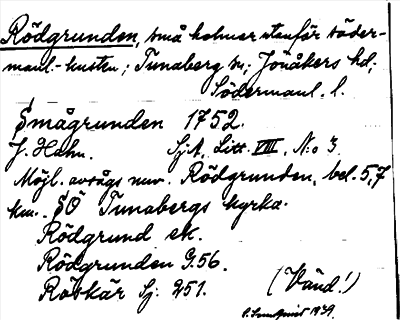 Rödgrunden, små holmar utanför Söder-
manl.-kusten; Tunaberg sn; Jönåkers hd;
Södermanl. l.
Smågrunden 1752.
J. Hahn. SjA, Litt. VIII, N:o 3.
Möjl. avsågs nuv. Rödgrunden, bel. 5,7
km. SÖ Tunabergs kyrka.
Rödgrund ek.
Rödgrunden G.56.
Rödskär Sj: 251. (Vänd!)
1939.